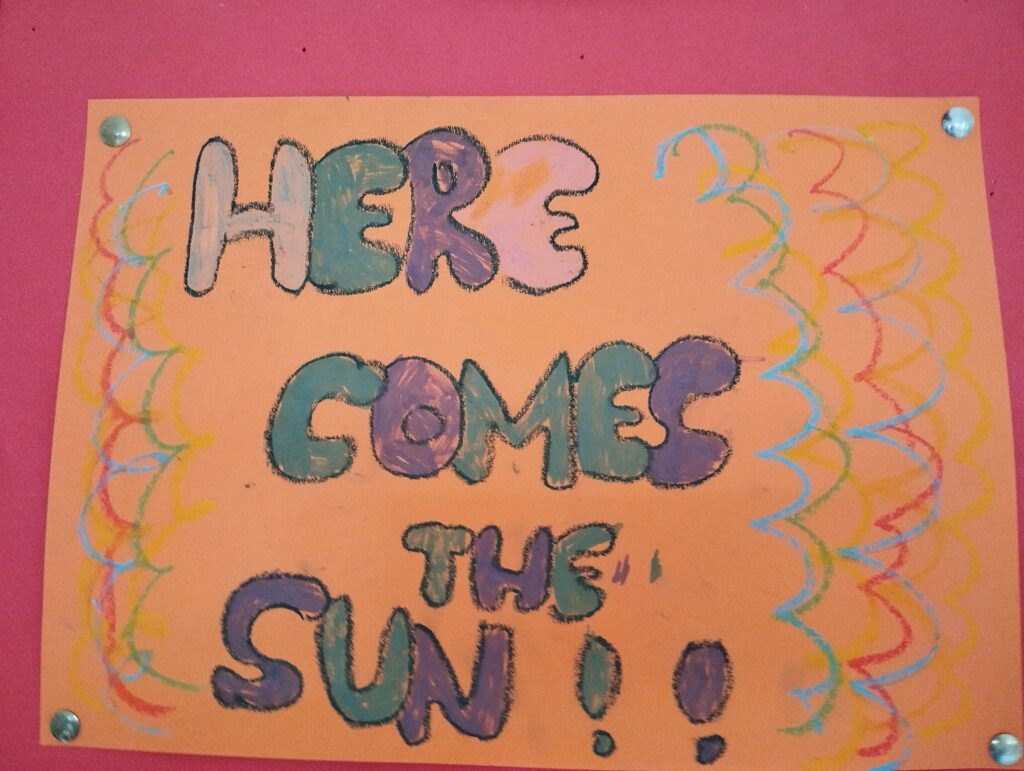 HERE
COMES
THE
SUN!!